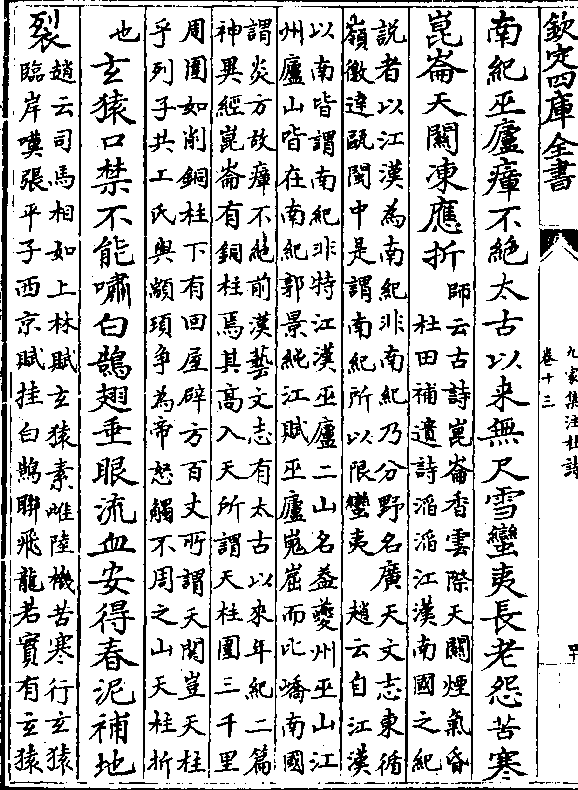 欽定四庫全書
九家集注杜詩
卷十三
南紀巫廬瘴不絶太古以来無尺雪蠻夷長老怨苦寒
崑崙天關凍應折
師云古詩崑崙香雲際天關煙氣昏
杜田補遺詩滔滔江漢南國之紀
説者以江漢為南紀非南紀乃分野名廣天文志東循
嶺徼達甌閩中是謂南紀所以限蠻夷　趙云自江漢
以南皆謂南紀非特江漢巫廬二山名葢夔州巫山江
州廬山皆在南紀郭景純江賦巫廬嵬崫而比嶠南國
謂炎方故瘴不絶前漢藝文志有太古以來年紀二篇
神異經崑崙有銅柱焉其高入天所謂天柱圍三千里
周圍如削銅柱下有回屋辟方百丈所謂天関豈天柱
乎列子共工氏與顓頊争為帝怒觸不周之山天柱折
也
玄猿口禁不能嘯白鵠翅垂眼流血安得春泥補地
裂
趙云司馬相如上林賦玄猿素雌陸機苦寒行玄猿
臨岸嘆張平子西京賦挂白鵠聯飛龍若實有玄猿